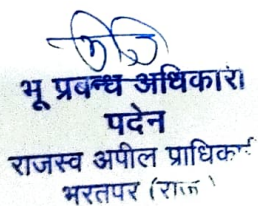 भू प्रबन्ध अधिकारी
पदेन
राजस्व अपील प्राधिकारी
भरतपर (राज)